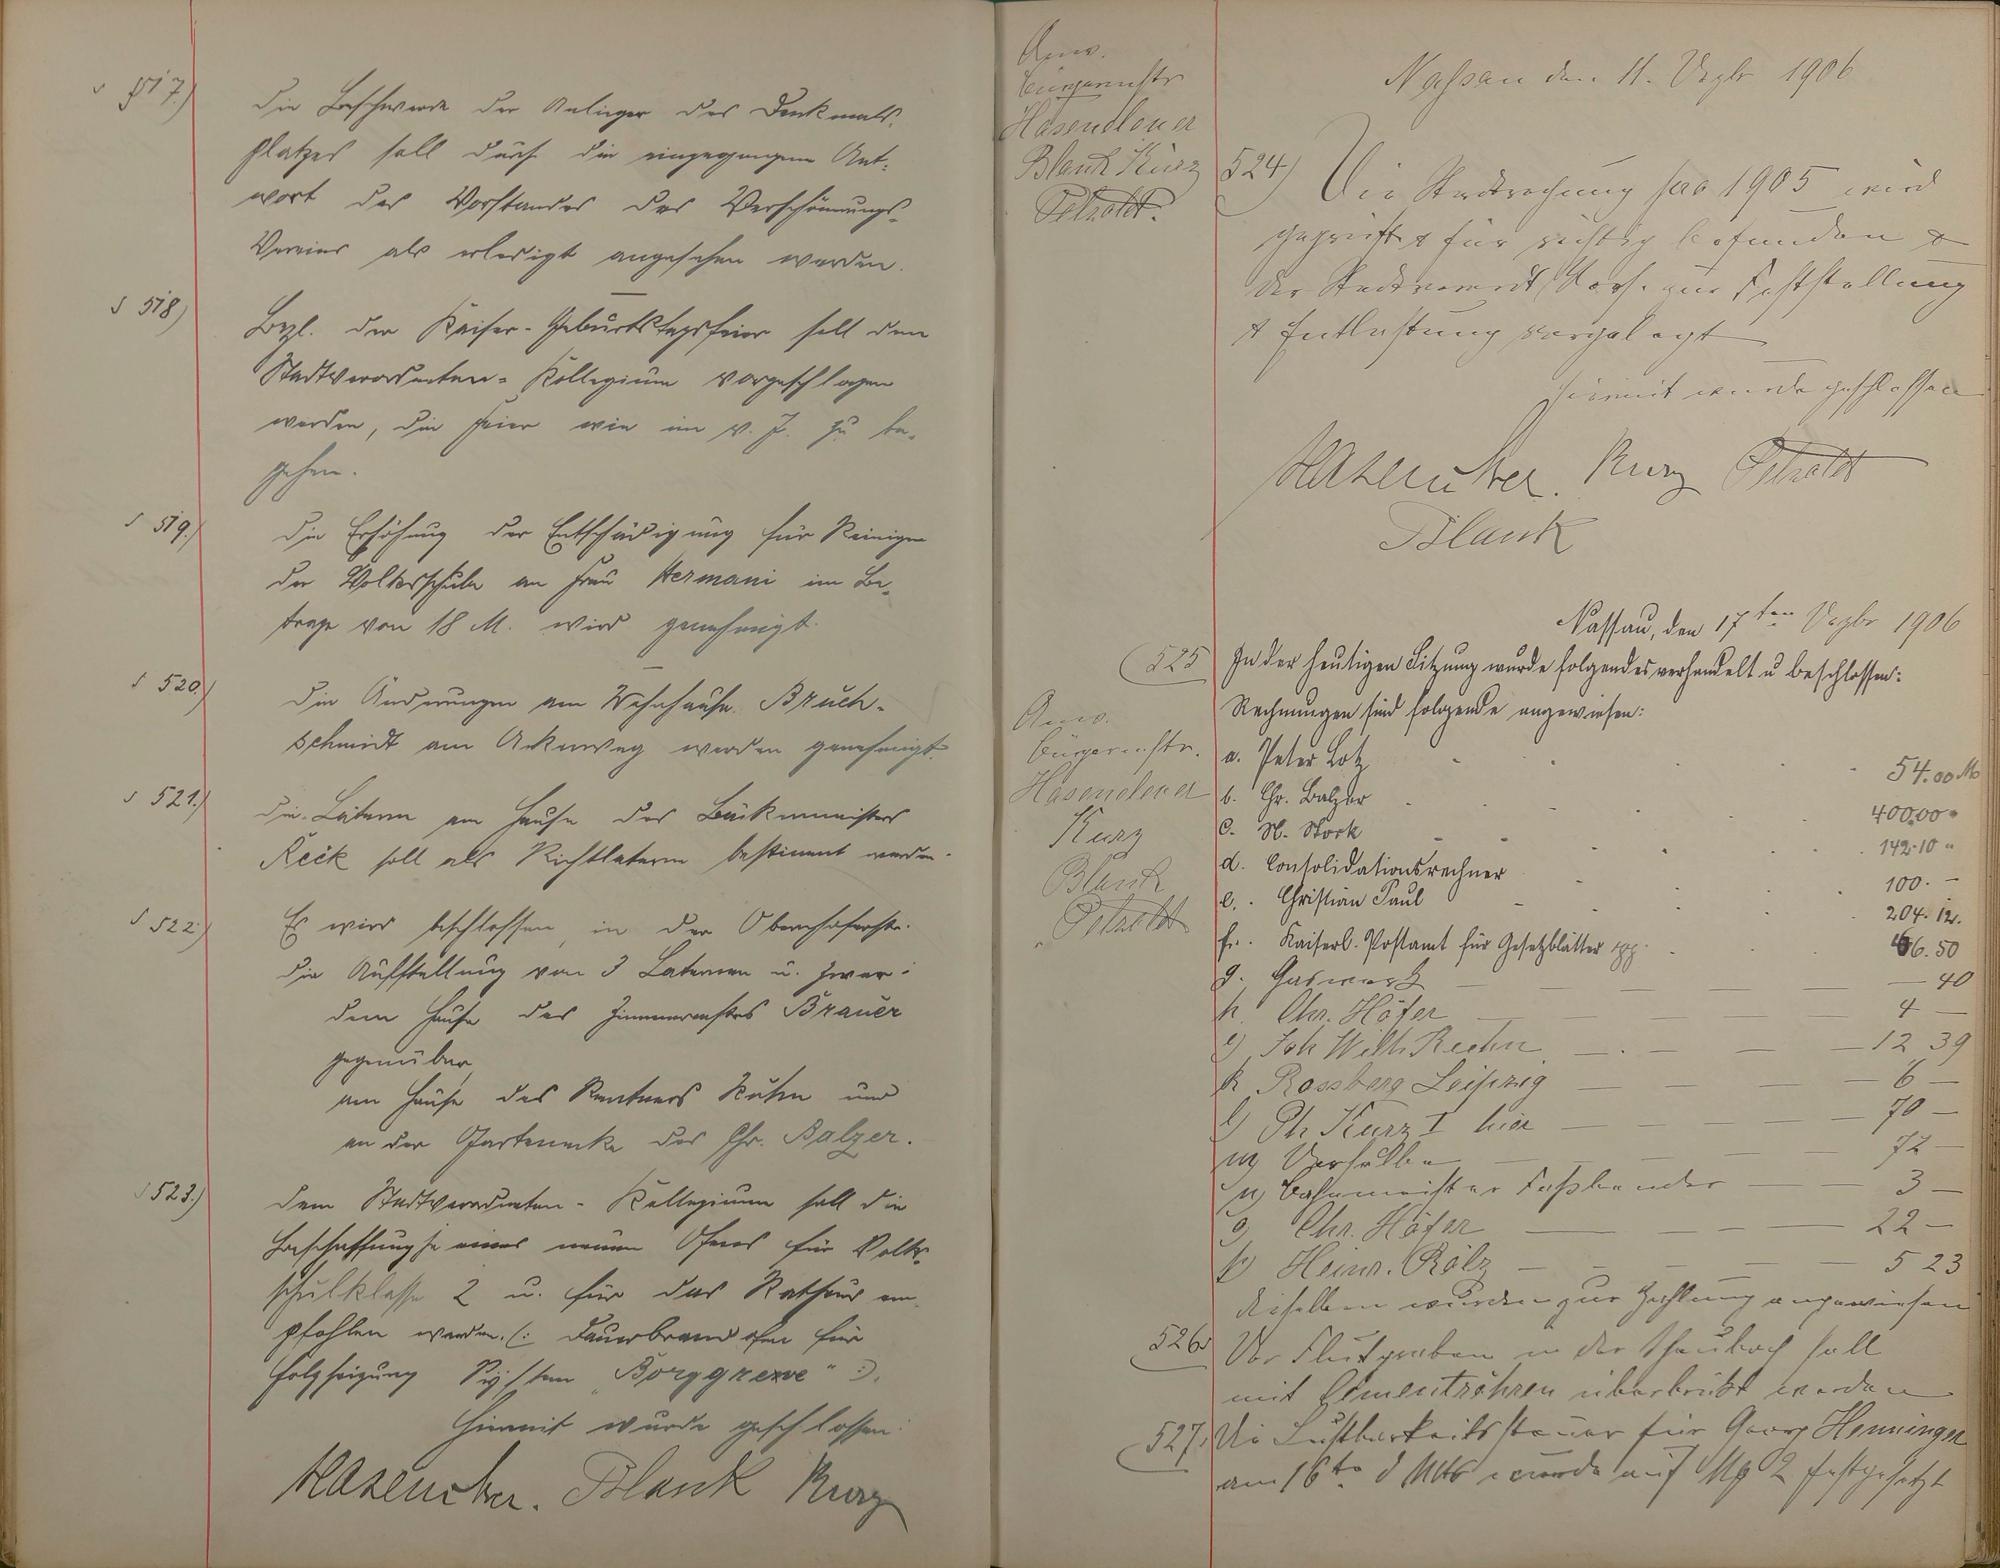 § 517.)
Die Beschwerde der Anlieger des Denkmals-
platzes soll durch die eingegangene Ant-
wort des Vorstandes des Verschönerungs-
Vereins als erledigt angesehen werden.
§ 518)
Bzl. der Kaiser-Geburtstagsfeier soll dem
Stadtverordneten-Kollegium vorgeschlagen
werden, die Feier wie im v. J. zu be-
gehen.
§ 519.)
Die Erhöhung der Entschädigung für Reinigen
der Volksschule an Frau Hermani im Be-
trage von 18 M. wird genehmigt.
§ 520.)
Die Änderungen am Wohnhause Bruch-
schmidt am Ankerweg werden genehmigt.
§ 521.)
Die Laterne am Hause des Bäckermeisters
Reck soll als Richtlaterne bestimmt werden.
§ 522.)
Es wird beschlossen, in der Obernhoferstr.
die Aufstellung von 3 Laternen u. zwar:
dem Hause des Zimmermstrs Brauer
gegenüber,
am Hause des Rentners Kuhn und
an der Gartenecke des Chr. Balzer.
§ 523.)
Dem Stadtverordneten-Kollegium soll die
Beschaffung je eines neuen Ofens für Volks-
schulklasse 2 u. für das Rathaus em-
pfohlen werden. (: Dauerbrandofen für
Holzheizung System "Borggreve" :).
Hiermit wurde geschlossen:
Hasenclever. Blank Kurz
Anw.
Bürgermstr
Hasenclever
Blank Kurz
Petzoldt.
Nassau den 11. Dezbr 1906
524)
Die Stadtrechnung pro 1905 wird
geprüft & für richtig befunden &
der Stadtverordt. Vers. zur Feststellung
& Entlastung vorgelegt
Hiermit wurde geschlossen
Hasenclever. Kurz Petzoldt
Blank
Nassau, den 17ten Dezbr 1906
525
In der heutigen Sitzung wurde folgendes verhandelt u beschlossen:
Rechnungen sind folgende angewiesen:
Anw.
Bürgermstr.
Hasenclever
Kurz
Blank
Petzoldt
a. Peter Lotz 54.00 M
b. Chr. Balzer 400.00 "
c. W. Stork 142.10 "
d. Consolidationsrechner 100. —
e. Christian Paul 204.12.
f. Kaiserl. Postamt für Gesetzblätter pp. 66.50
g. Gaswerk — 40
h. Chr. Höfer 4 —
i) Joh Wilh Rechn 12 39
k Rossberg Leipzig 6 —
l) Ph Kurz I hier 70 —
m) Derselbe 72 —
n) Bahnmeister Faßbender 3 —
o) Chr. Höfer 22 —
p) Heinr. Rölz 5 23
dieselben wurden zur Zahlung angewiesen
526
Der Flutgraben in der soll
mit Cementröhren überbrückt werden
527.
Die Lustbarkeitssteuer für Georg Henninger
am 16ten d Mts wurde auf Mk 2 festgesetzt